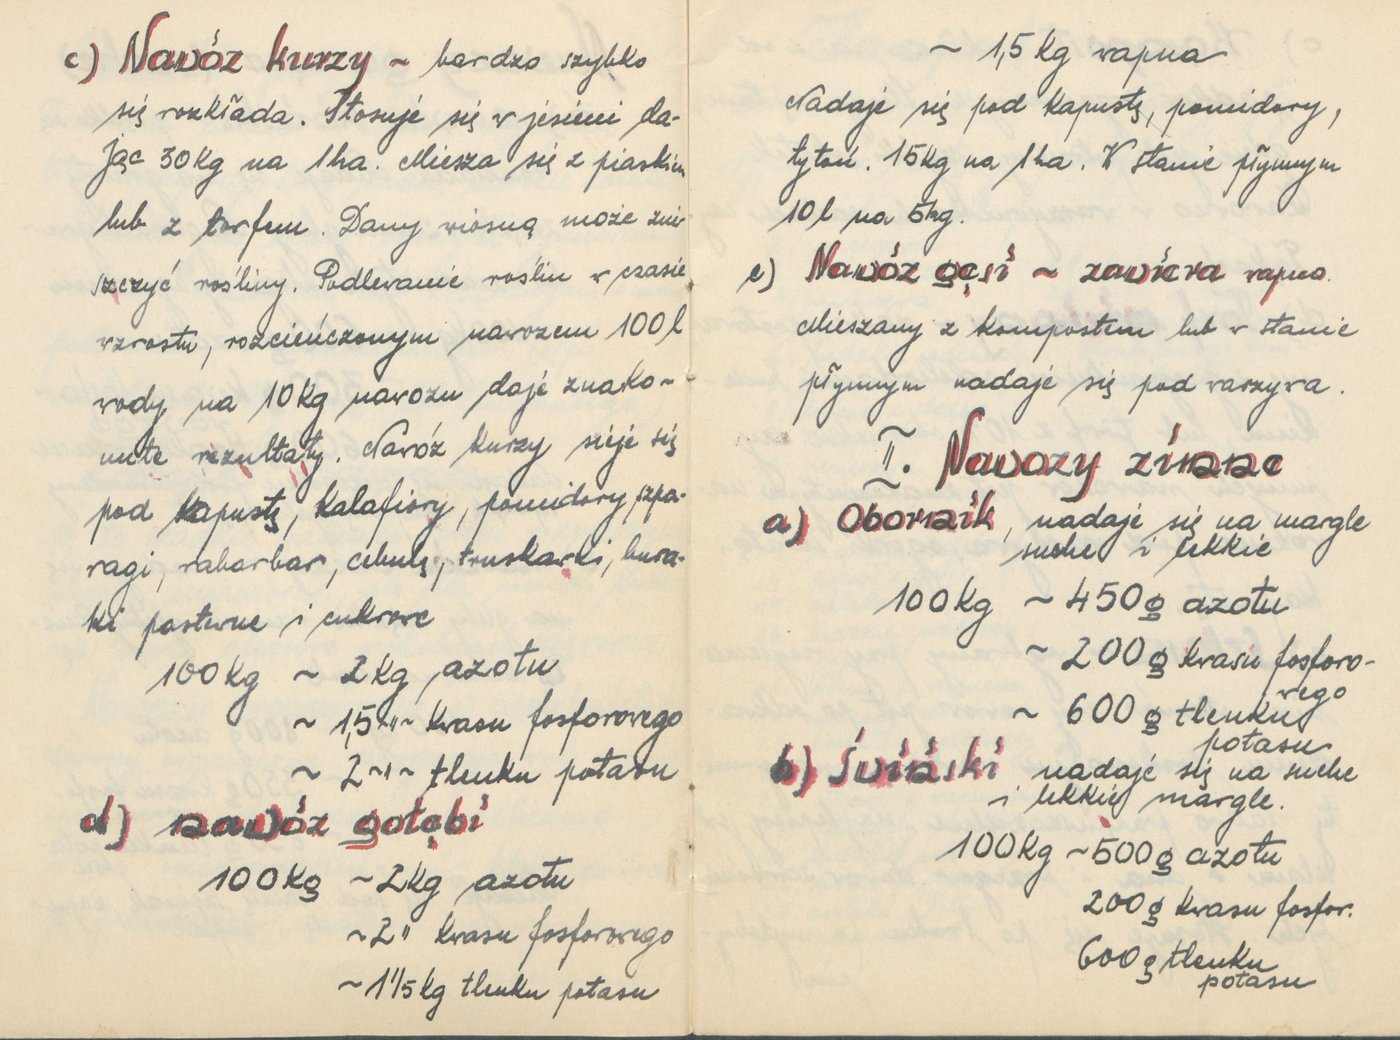 c) Nawóz kurzy ~ bardzo szybko
się rozkłada. Stosuje się w jesieni da-
jąc 30 kg na 1 ha. Miesza się z piaskiem
lub z torfem. Dany wiosną może zni-
szczyć rośliny. Podlewanie roślin w czasie
wzrostu, rozcieńczonym nawozem 100 l
wody na 10 kg nawozu daje znako-
mite rezultaty. Nawóz kurzy sieje się
pod kapustę, kalafiory, pomidory, szpa-
ragi, rabarbar, cebulę, truskawki, bura-
ki pastwne i cukrowe
100 kg ~ 2 kg azotu
~ 1,5 ~"~ kwasu fosforowego
~ 2 ~"~ tlenku potasu
d) nawóz gołębi
100 kg ~ 2 kg azotu
~ 2 " kwasu fosforowego
~ 1 1/5 kg tlenku potasu
~ 1,5 kg wapna
Nadaje się pod kapustę, pomidory,
tytoń. 15 kg na 1 ha. W stanie płynnym
10 l na 5 kg.
e) Nawóz gęsi ~ zawiera wapno.
Mieszany z kompostem lub w stanie
płynnym nadaje się pod warzywa.
II. Nawozy zimne
a) Obornik, nadaje się na margle
suche i lekkie
100 kg ~ 450 g azotu
~ 200 g kwasu fosforo-
wego
~ 600 g tlenku
potasu
b) Świński nadaje się na suche
i lekkie margle.
100 kg ~ 500 g azotu
200 g kwasu fosfor.
600 g tlenku
potasu